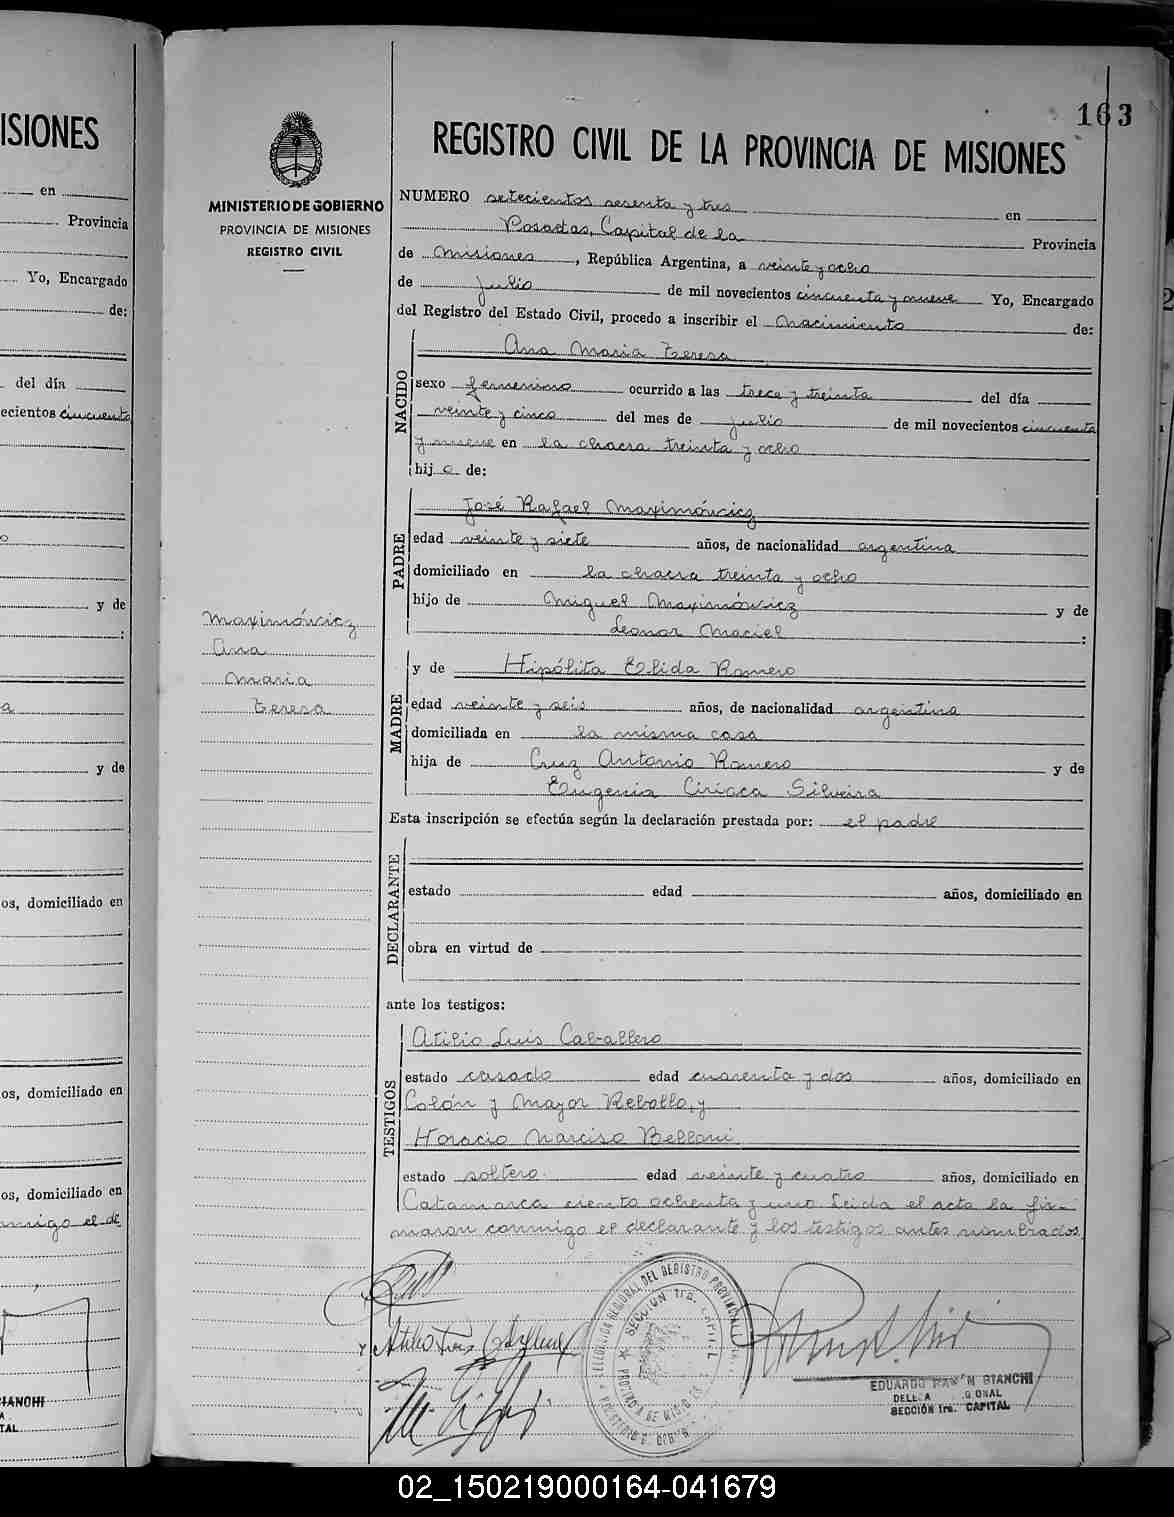 ISIONES
en
Provincia
Yo, Encargado
de:
del día
ecientos cincuenta
y de
:
a
y de
os, domiciliado en
os, domiciliado en
os, domiciliado en
nmigo el de
IANCHI
A
TAL
163
MINISTERIO DE GOBIERNO
PROVINCIA DE MISIONES
REGISTRO CIVIL
Maximówicz
Ana
Maria
Teresa
REGISTRO CIVIL DE LA PROVINCIA DE MISIONES
NUMERO setecientos sesenta y tres en
Posadas, Capital de la Provincia
de Misiones, República Argentina, a veinte y ocho
de Julio de mil novecientos cincuenta y nueve Yo, Encargado
del Registro del Estado Civil, procedo a inscribir el Nacimiento de:
NACIDO
Ana Maria Teresa
sexo femenino ocurrido a las trece y treinta del día
veinte y cinco del mes de julio de mil novecientos cincuenta
y nueve en la chacra treinta y ocho
hij a de:
PADRE
José Rafael Maximówicz
edad veinte y siete años, de nacionalidad argentina
domiciliado en la chacra treinta y ocho
hijo de Miguel Maximówicz y de
Leonor Maciel :
MADRE
y de Hipólita Elida Romero
edad veinte y seis años, de nacionalidad argentina
domiciliada en la misma casa
hija de Cruz Antonio Romero y de
Eugenia Ciriaca Silveira
Esta inscripción se efectúa según la declaración prestada por: el padre
DECLARANTE
estado edad años, domiciliado en
obra en virtud de
ante los testigos:
TESTIGOS
Atilio Luis Caballero
estado casado edad cuarenta y dos años, domiciliado en
Colón y Mayor Rebollo, y
Horacio Narciso Belloni
estado soltero edad veinte y cuatro años, domiciliado en
Catamarca ciento ochenta y uno Leida el acta la fir-
maron conmigo el declarante y los testigos antes nombrados
DELEGACION REGIONAL DEL REGISTRO PROVINCIAL
SECCION 1ra. CAPITAL
PROVINCIA DE MISIONES
EDUARDO RAMON BIANCHI
SECCIÓN 1ra. CAPITAL
02_150219000164-041679